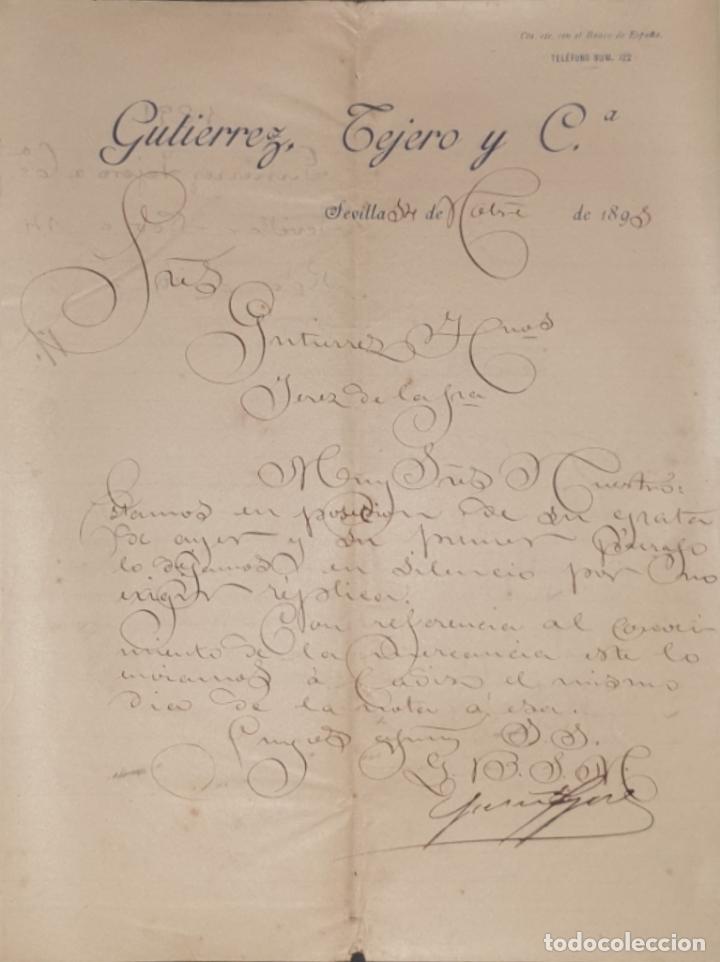 Cta. cte. con el Banco de España.
TELÉFONO NUM. 122
Gutierrez, Tejero y C.ª
Sevilla 24 de Nobre de 1893
Sres
Gutierrez Hnos
Jerez de la Fra
Muy Sres Nuestros:
Estamos en posecion de su grata
de ayer y su primer parrafo
lo dejamos en silencio por no
exigir réplica.
Con referencia al conoci
miento de la mercancia este lo
enviamos à Cadiz el mismo
dia de la nota à esa.
S. S.
Q. B. S. M.
todocoleccion